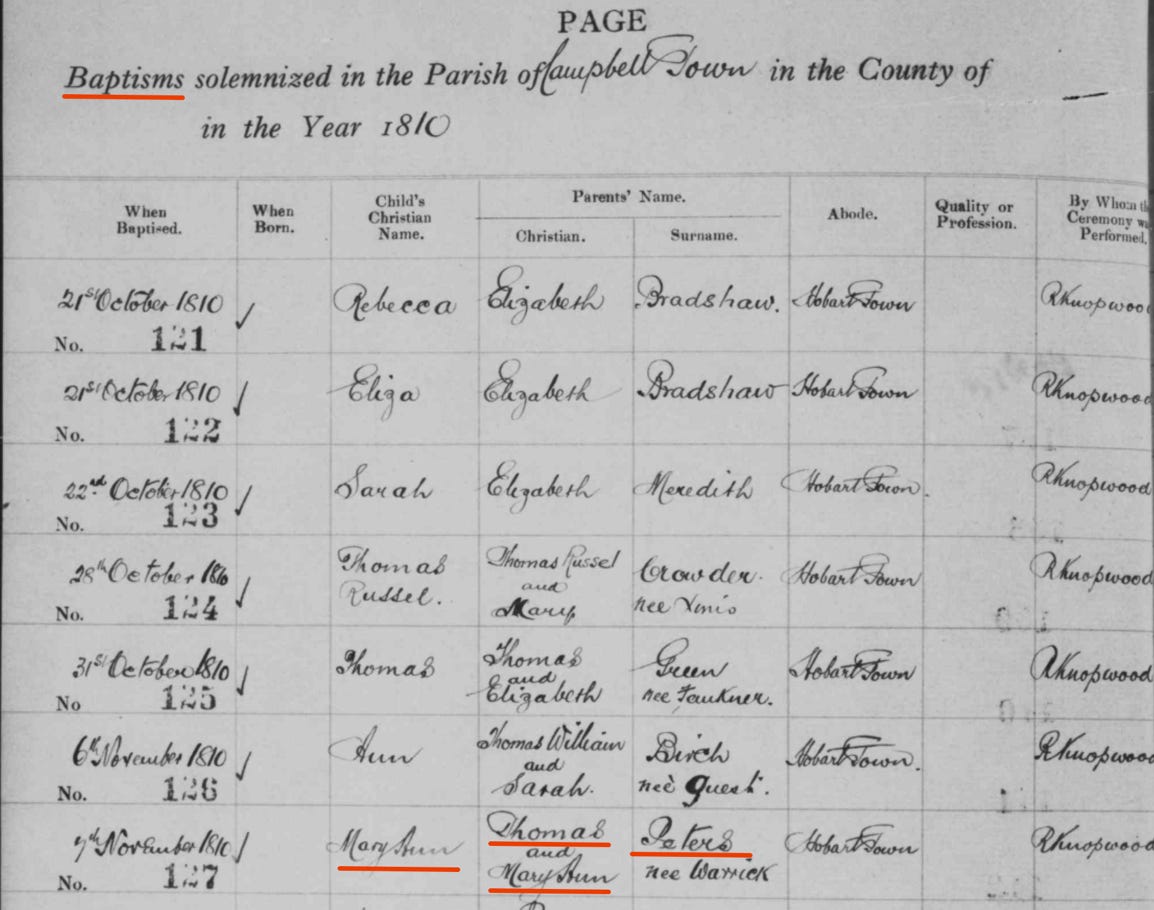 PAGE
Baptisms solemnized in the Parish of Campbell Town in the County of
in the Year 1810
When Baptised. When Born. Child's Christian Name. Parents' Name. Christian. Surname. Abode. Quality or Profession. By Whom th Ceremony wa Performed.
21st October 1810 Rebecca Elizabeth Bradshaw. Hobart Town RKnopwood
No. 121
21st October 1810 Eliza Elizabeth Bradshaw Hobart Town RKnopwood
No. 122
22nd October 1810 Sarah Elizabeth Meredith Hobart Town. RKnopwood
No. 123
28th October 1810 Thomas Russel. Thomas Russel and Mary Crowder. nee Hobart Town RKnopwood
No. 124
31st October 1810 Thomas Thomas and Elizabeth Green nee Faukner. Hobart Town RKnopwood
No 125
6th November 1810 Ann Thomas William and Sarah. Birch neè Guest. Hobart Town. RKnopwood
No. 126
7th November 1810 Mary Ann Thomas and Mary Ann Peters nee Warrick Hobart Town RKnopwood
No. 127